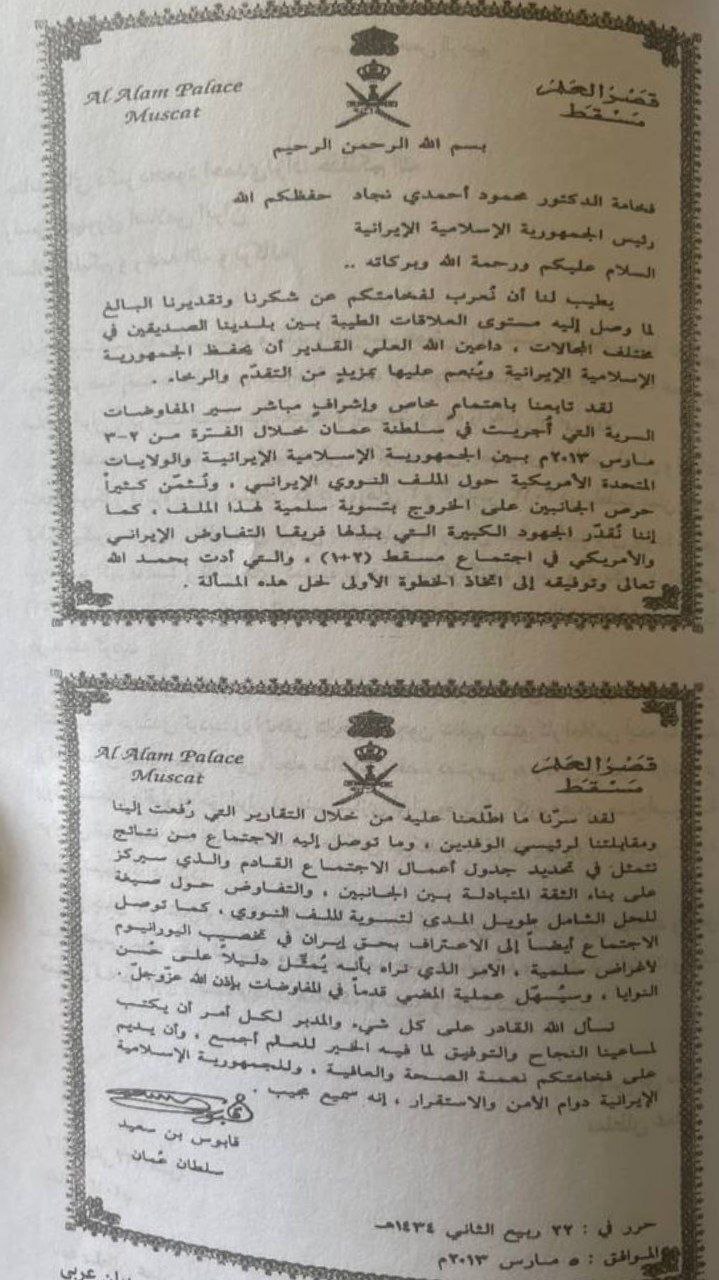 Al Alam Palace
Muscat
قصر العلم
مسقط
بسم الله الرحمن الرحيم
فخامة الدكتور محمود أحمدي نجاد حفظكم الله
رئيس الجمهورية الإسلامية الإيرانية
السلام عليكم ورحمة الله وبركاته ..
يطيب لنا أن نُعرب لفخامتكم عن شكرنا وتقديرنا البالغ
لما وصل إليه مستوى العلاقات الطيبة بين بلدينا الصديقين في
مختلف المجالات ، داعين الله العلي القدير أن يحفظ الجمهورية
الإسلامية الإيرانية ويُنعم عليها بمزيدٍ من التقدّم والرخاء .
لقد تابعنا باهتمام خاص وإشرافٍ مباشر سير المفاوضات
السرية التي أُجريت في سلطنة عمان خلال الفترة من ٢-٣
مارس ٢٠١٣م بين الجمهورية الإسلامية الإيرانية والولايات
المتحدة الأمريكية حول الملف النووي الإيراني ، ونُثمّن كثيراً
حرص الجانبين على الخروج بتسوية سلمية لهذا الملف ، كما
إننا نُقدّر الجهود الكبيرة التي بذلها فريقا التفاوض الإيراني
والأمريكي في اجتماع مسقط (٢+١) ، والتي أدت بحمد الله
تعالى وتوفيقه إلى اتخاذ الخطوة الأولى لحل هذه المسألة .
Al Alam Palace
Muscat
قصر العلم
مسقط
لقد سرّنا ما اطّلعنا عليه من خلال التقارير التي رُفعت إلينا
ومقابلتنا لرئيسي الوفدين ، وما توصل إليه الاجتماع من نتائج
تتمثل في تحديد جدول أعمال الاجتماع القادم والذي سيركز
على بناء الثقة المتبادلة بين الجانبين ، والتفاوض حول صيغة
للحل الشامل طويل المدى لتسوية للملف النووي ، كما توصل
الاجتماع أيضاً إلى الاعتراف بحق إيران في تخصيب اليورانيوم
لأغراض سلمية ، الأمر الذي نراه بأنه يُمثّل دليلاً على حُسن
النوايا ، وسيُسهّل عملية المضي قدماً في المفاوضات بإذن الله عزّوجلّ .
نسأل الله القادر على كل شيء والمدبر لكل أمر أن يكتب
لمساعينا النجاح والتوفيق لما فيه الخير للعالم أجمع ، وأن يديم
على فخامتكم نعمة الصحة والعافية ، وللجمهورية الإسلامية
الإيرانية دوام الأمن والاستقرار ، إنه سميع مجيب .
قابوس بن سعيد
سلطان عُمان
حرر في : ٢٢ ربيع الثاني ١٤٣٤هـ
الموافق : ٥ مارس ٢٠١٣م
عربي